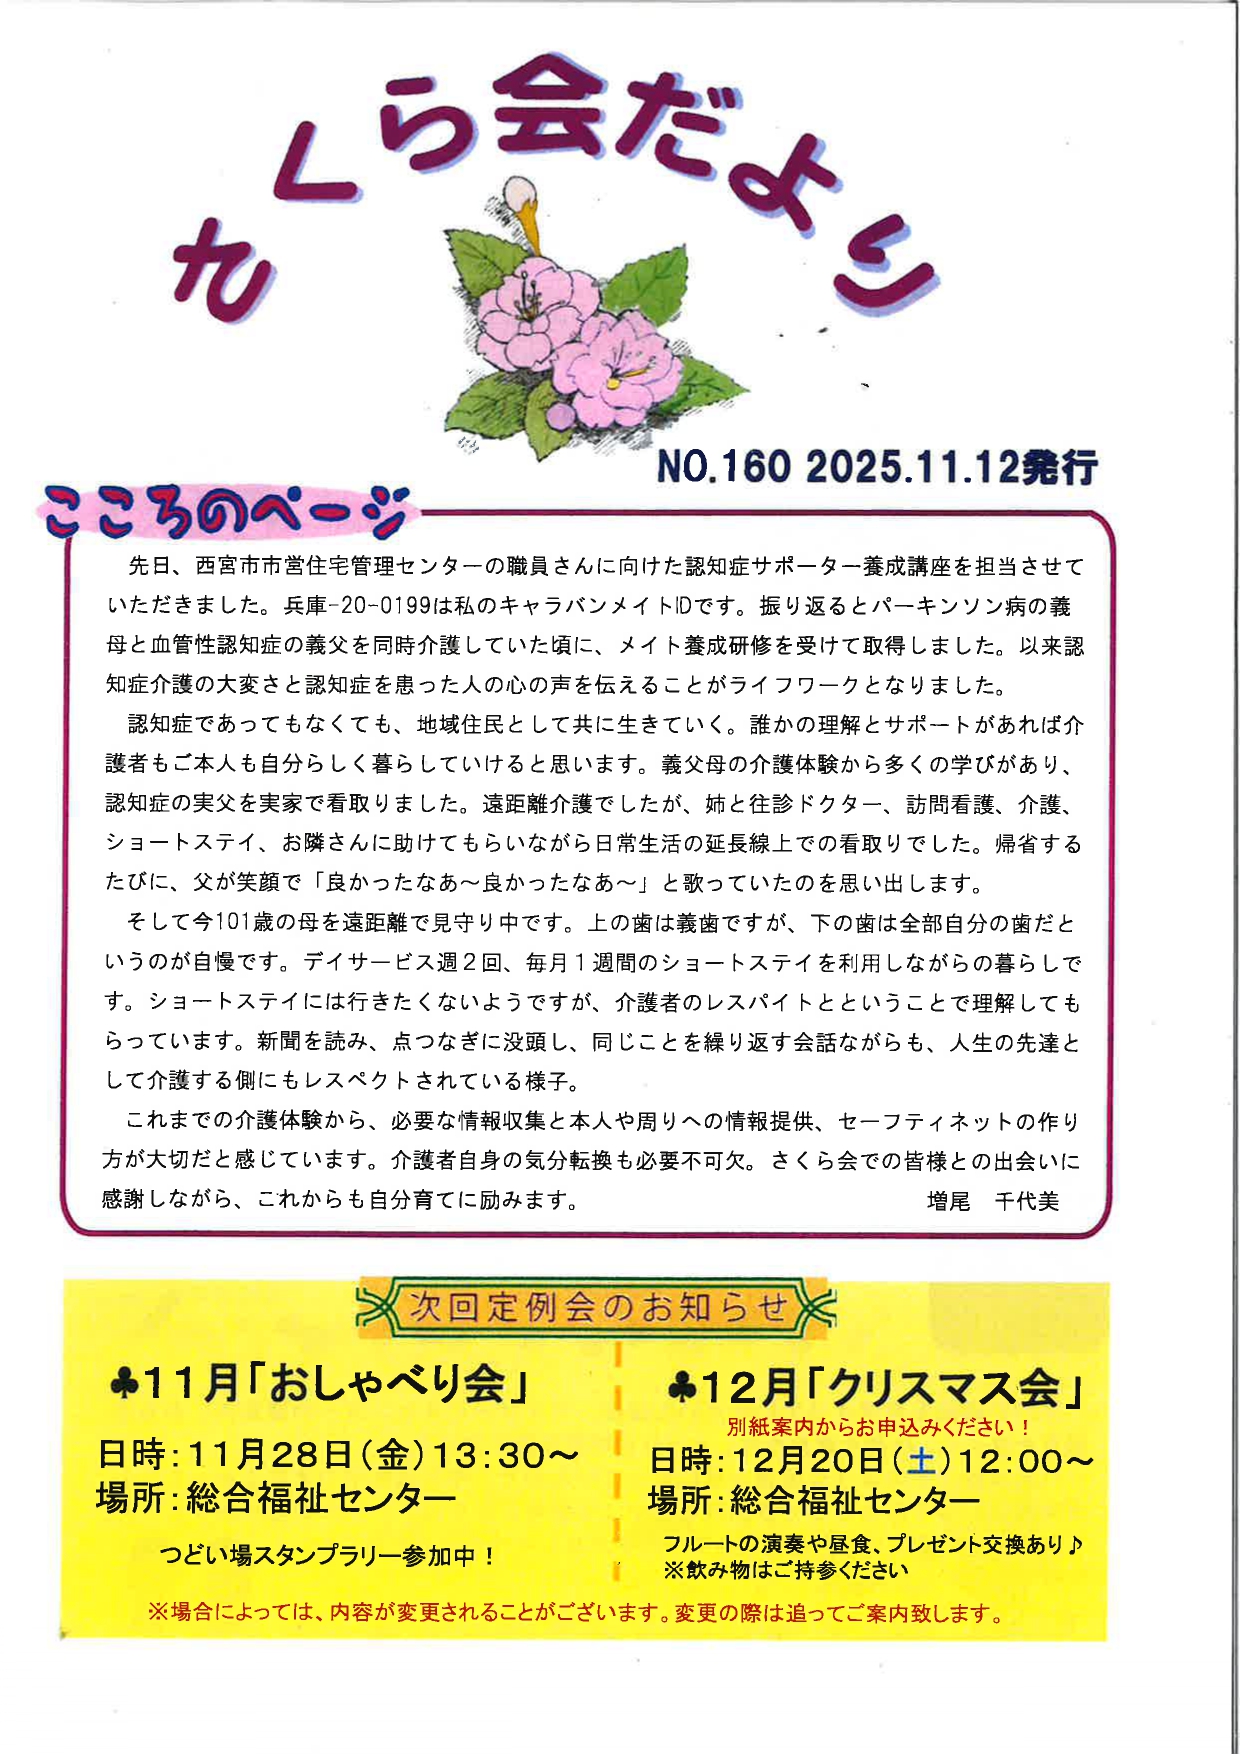 さくら会だより
NO.160 2025.11.12発行
こころのページ
先日、西宮市市営住宅管理センターの職員さんに向けた認知症サポーター養成講座を担当させて
いただきました。兵庫-20-0199は私のキャラバンメイトIDです。振り返るとパーキンソン病の義
母と血管性認知症の義父を同時介護していた頃に、メイト養成研修を受けて取得しました。以来認
知症介護の大変さと認知症を患った人の心の声を伝えることがライフワークとなりました。
認知症であってもなくても、地域住民として共に生きていく。誰かの理解とサポートがあれば介
護者もご本人も自分らしく暮らしていけると思います。義父母の介護体験から多くの学びがあり、
認知症の実父を実家で看取りました。遠距離介護でしたが、姉と往診ドクター、訪問看護、介護、
ショートステイ、お隣さんに助けてもらいながら日常生活の延長線上での看取りでした。帰省する
たびに、父が笑顔で「良かったなあ～良かったなあ～」と歌っていたのを思い出します。
そして今101歳の母を遠距離で見守り中です。上の歯は義歯ですが、下の歯は全部自分の歯だと
いうのが自慢です。デイサービス週２回、毎月１週間のショートステイを利用しながらの暮らしで
す。ショートステイには行きたくないようですが、介護者のレスパイトとということで理解しても
らっています。新聞を読み、点つなぎに没頭し、同じことを繰り返す会話ながらも、人生の先達と
して介護する側にもレスペクトされている様子。
これまでの介護体験から、必要な情報収集と本人や周りへの情報提供、セーフティネットの作り
方が大切だと感じています。介護者自身の気分転換も必要不可欠。さくら会での皆様との出会いに
感謝しながら、これからも自分育てに励みます。　増尾　千代美
次回定例会のお知らせ
♣11月「おしゃべり会」
日時：11月28日（金）13：30～
場所：総合福祉センター
つどい場スタンプラリー参加中！
♣12月「クリスマス会」
別紙案内からお申込みください！
日時：12月20日（土）12：00～
場所：総合福祉センター
フルートの演奏や昼食、プレゼント交換あり♪
※飲み物はご持参ください
※場合によっては、内容が変更されることがございます。変更の際は追ってご案内致します。